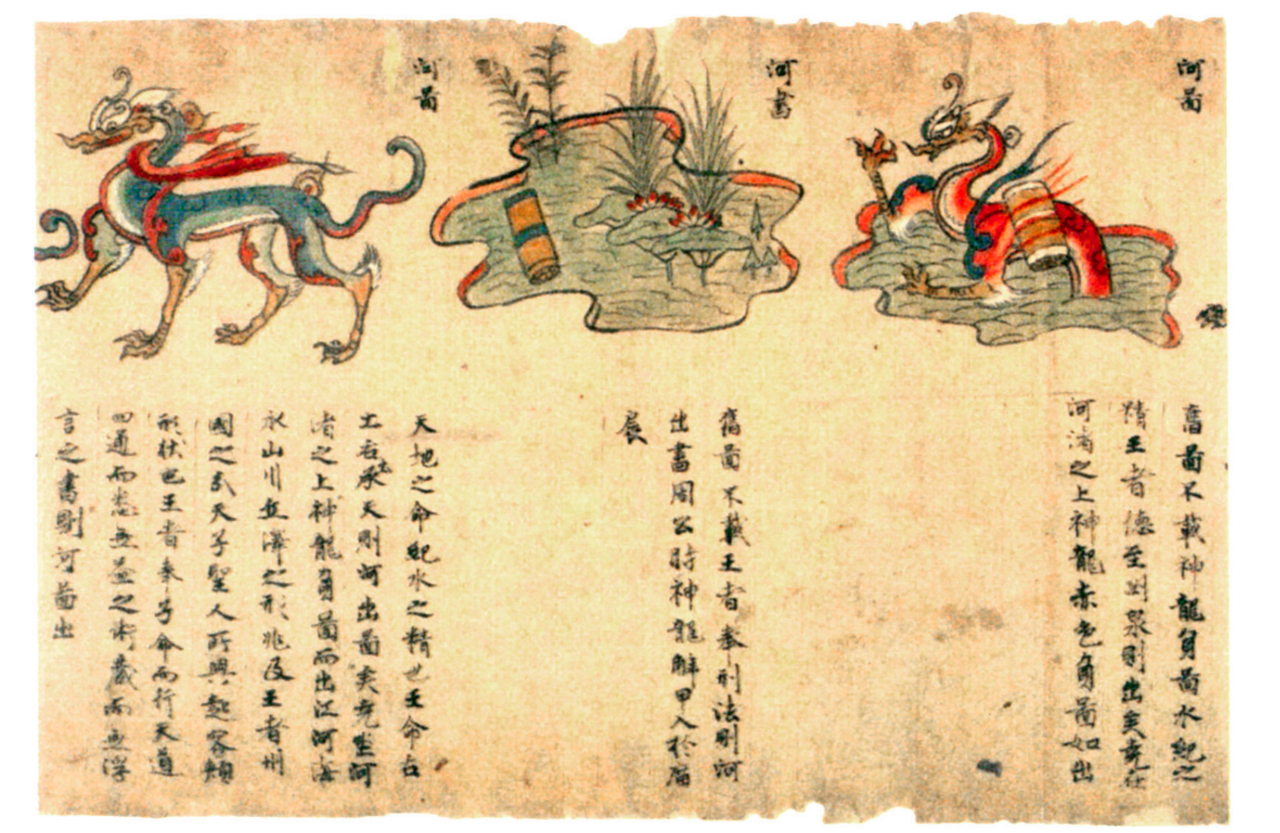 河圖
舊圖不載神龍負圖水紀之
精王者德至淵泉則出矣堯在
河渚之上神龍赤色負圖而出
河書
舊圖不載王者奉刑法則河
出書周公時神龍解甲入於
展
河圖
天地之命紀水之精也王命
土右上承天則河出圖矣堯坐河
渚之上神龍負圖而出江河海
水山川丘澤之形兆及王者州
國之分天子聖人所興起容顏
形狀也王者奉命而行天道
四通而悉無益之術藏而無浮
言之書則河圖出